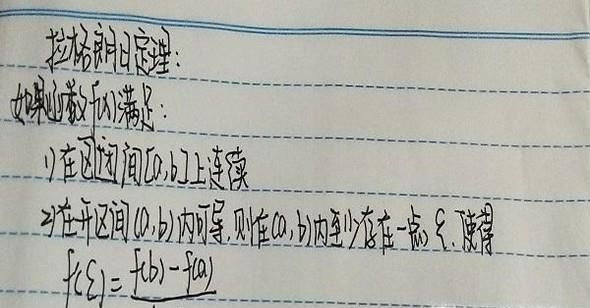 拉格朗日定理:
如果函数f(x)满足:
1)在区闭间[a,b]上连续
2)在开区间(a,b)内可导,则在(a,b)内至少存在一点ξ,使得
f(ξ)=f(b)-f(a)